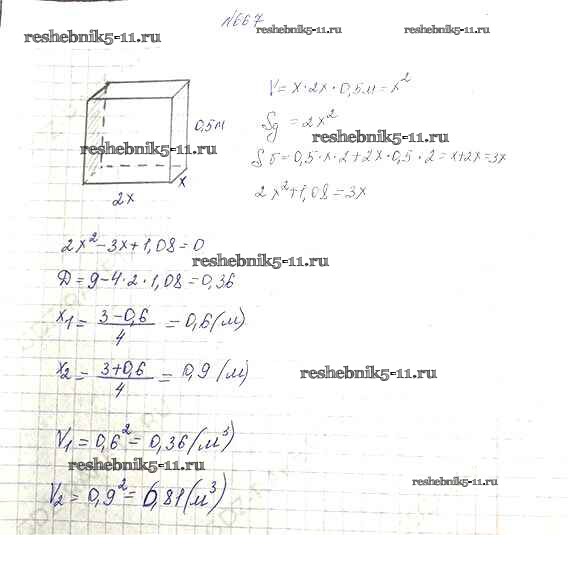 №667
reshebnik5-11.ru
reshebnik5-11.ru
reshebnik5-11.ru
V = x·2x·0,5м = x²
0,5м
Sд = 2x²
reshebnik5-11.ru
reshebnik5-11.ru
Sб = 0,5·x·2+2x·0,5·2 = x+2x = 3x
x
2x
2x²+1,08 = 3x
2x²-3x+1,08 = 0
reshebnik5-11.ru
D = 9-4·2·1,08 = 0,36
x₁ = (3-0,6)/4 = 0,6(м)
x₂ = (3+0,6)/4 = 0,9(м)
reshebnik5-11.ru
V₁ = 0,6² = 0,36(м³)
reshebnik5-11.ru
V₂ = 0,9² = 0,81(м³)
reshebnik5-11.ru